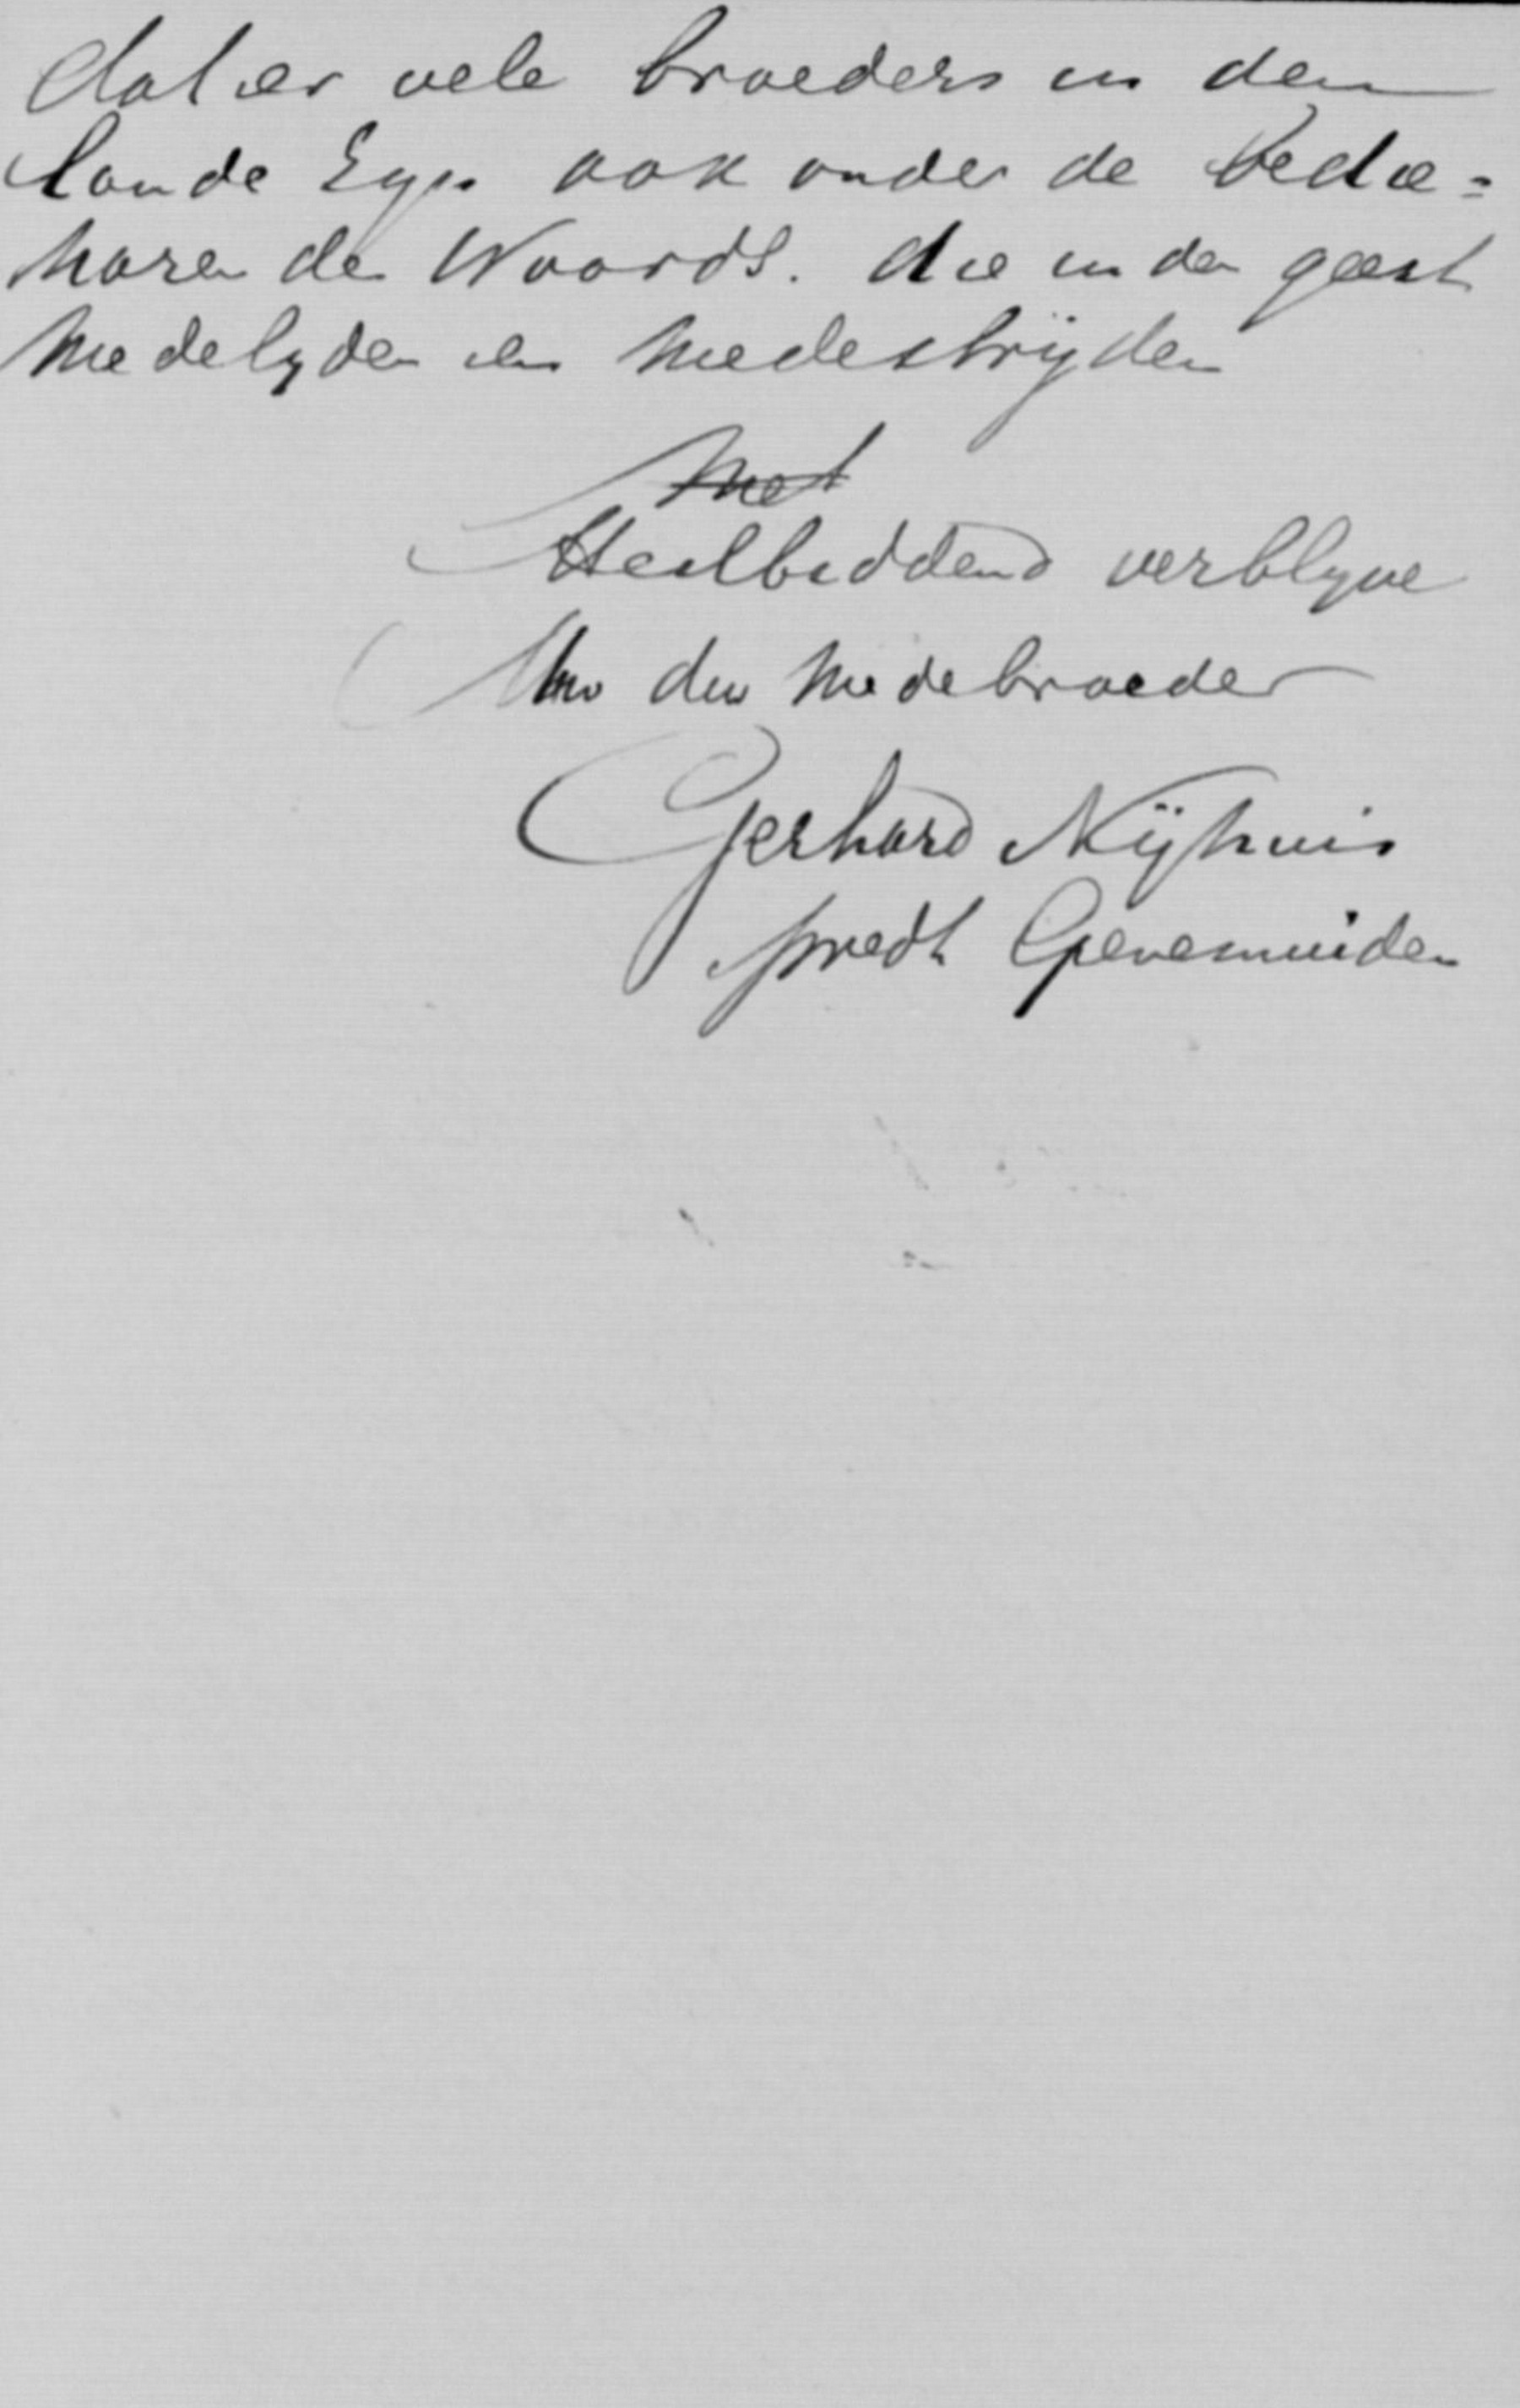 dat er vele broeders in den
lande zyn ook onder de bedie=
naren des Woords. die in den geest
medelyden en medestrijden
Met
Heilbiddend verblyve
Uw dw medebroeder
Gerhard Nijhuis
predt Genemuiden